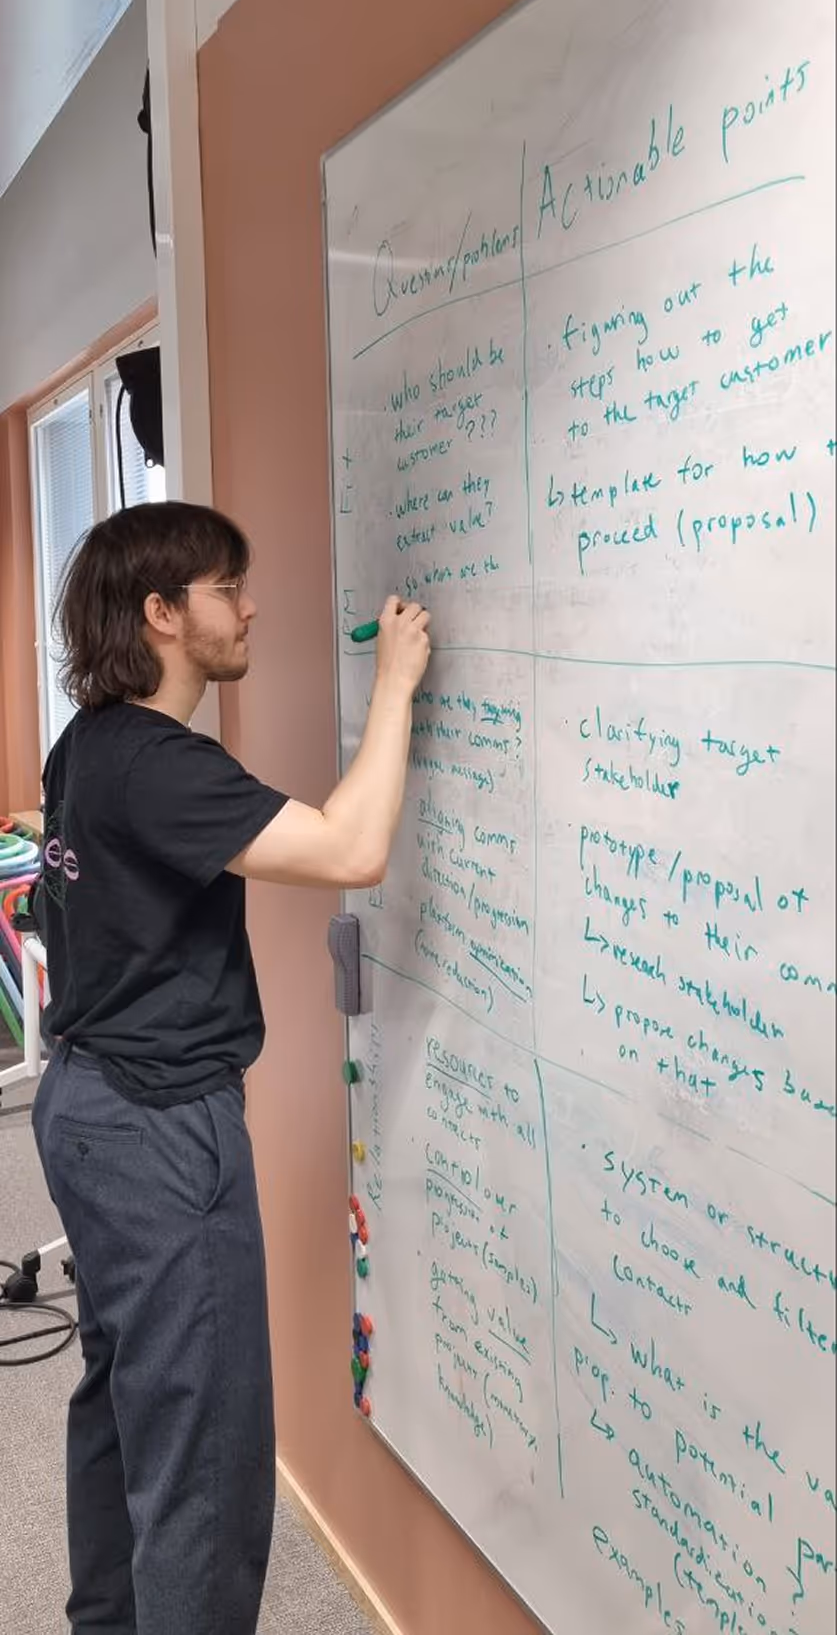 Questions/problems
Actionable points
· who should be
their target
customer ???
· where can they
extract value?
· so what are the
· figuring out the
steps how to get
to the target customer
↳ template for how
proceed (proposal)
who are they targeting
with their comms?
message)
aligning comms
with current
direction/progression
platform optimization
· clarifying target
stakeholder
· prototype/proposal of
changes to their
↳ research stakeholder
↳ propose changes
on that
Relationships
resources to
engage with all
contacts
· control over
progression of
projects (samples)
· getting value
from existing
projects
knowledge)
· system or
to choose and
contacts
↳ what is the
prop. to potential
↳ automation
examples